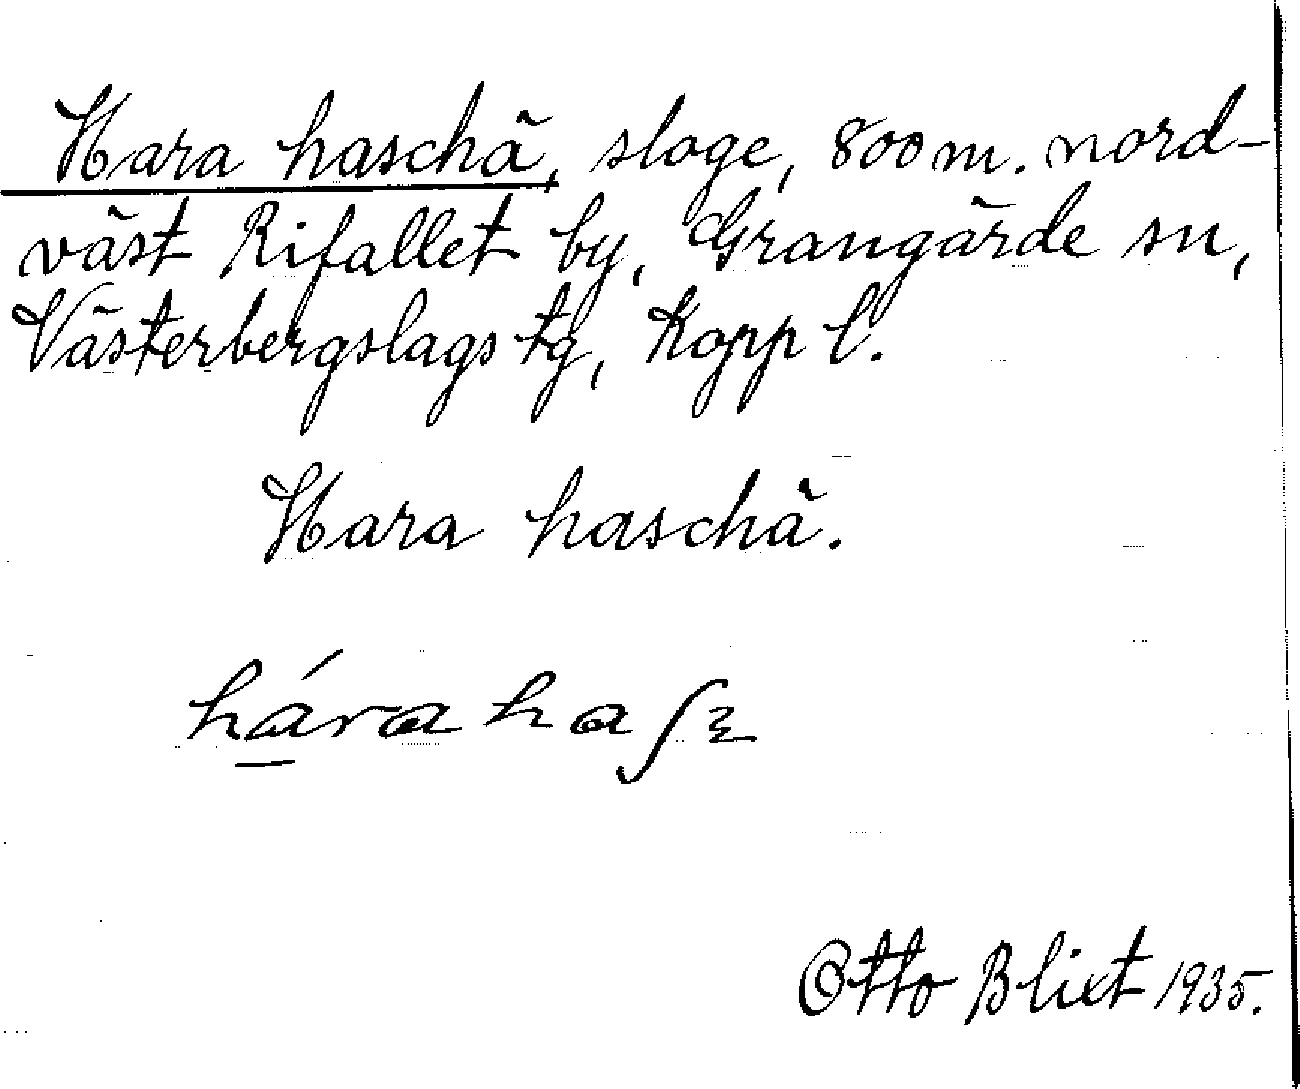 Hara haschä, sloge, 800 m. nord-
väst Rifallet by, Grangärde sn,
Västerbergslags tg, Kopp l.
Hara haschä.
hára haʃɛ
Otto Blixt 1935.